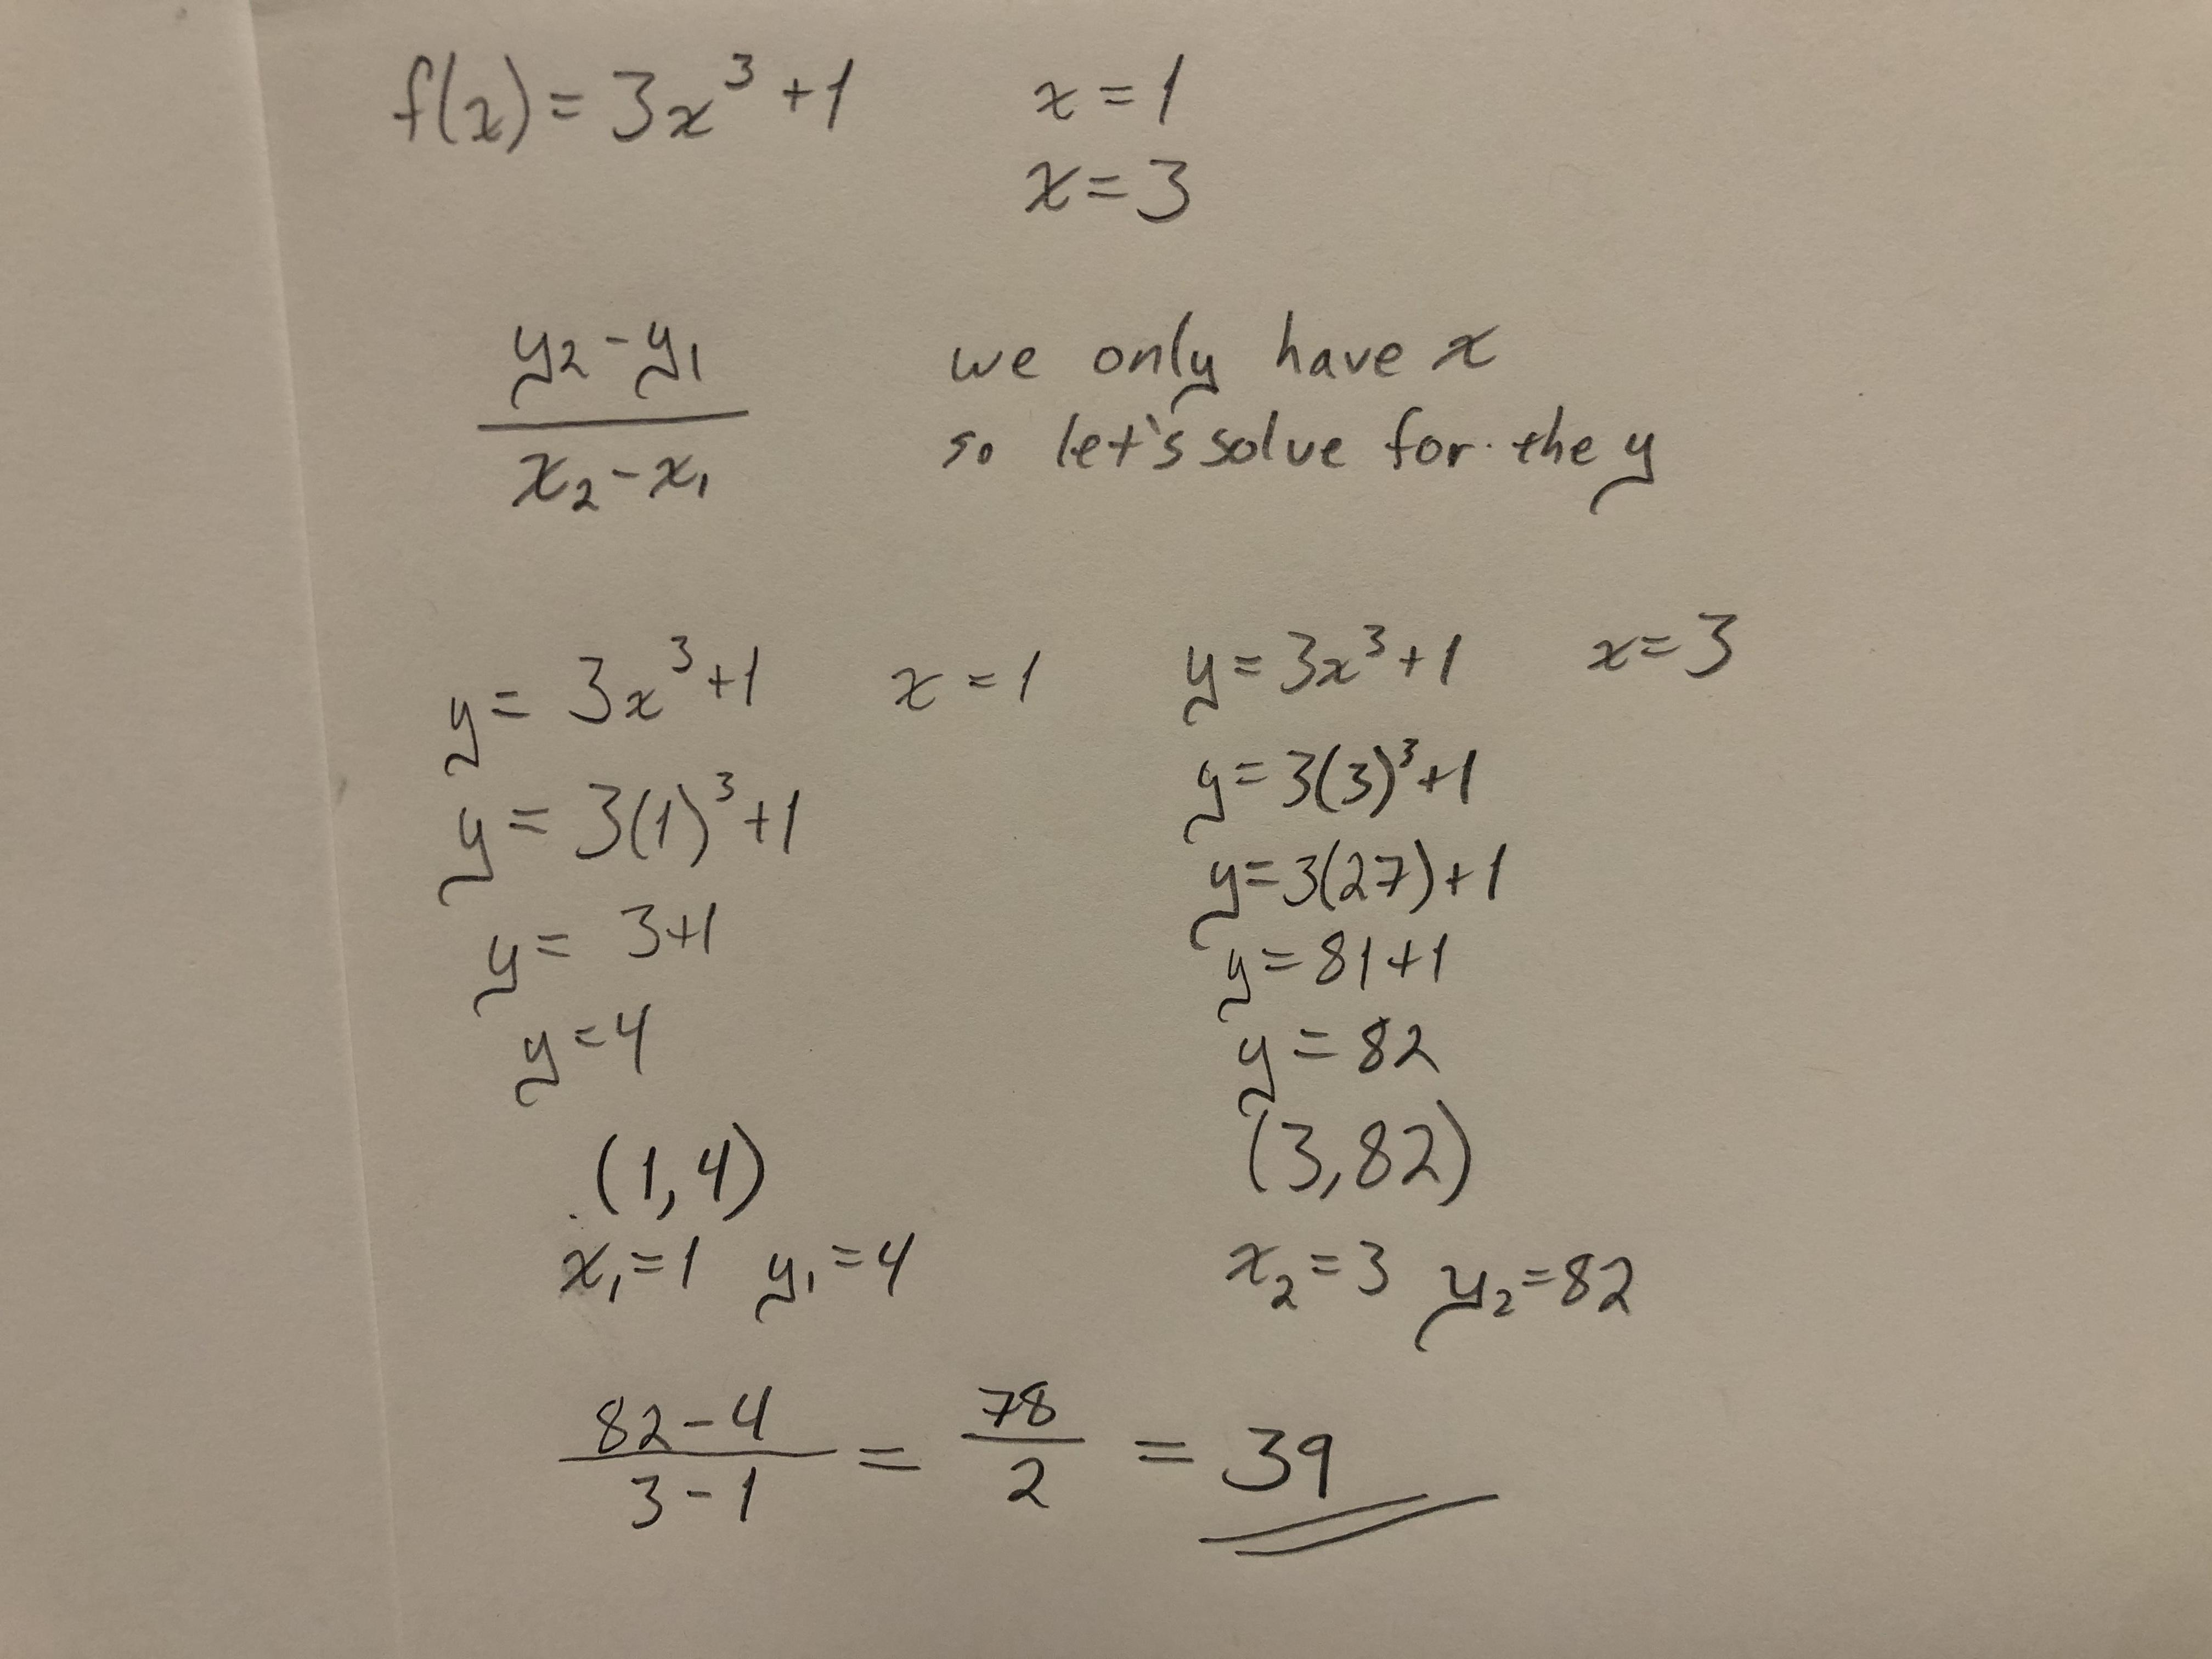 f(x) = 3x³ + 1    x = 1
x = 3
y₂ - y₁    we only have x
———    so let's solve for the y
x₂ - x₁
y = 3x³ + 1    x = 1
y = 3(1)³ + 1
y = 3 + 1
y = 4
(1, 4)
x₁ = 1    y₁ = 4
y = 3x³ + 1    x = 3
y = 3(3)³ + 1
y = 3(27) + 1
y = 81 + 1
y = 82
(3, 82)
x₂ = 3    y₂ = 82
82 - 4 / 3 - 1 = 78 / 2 = 39